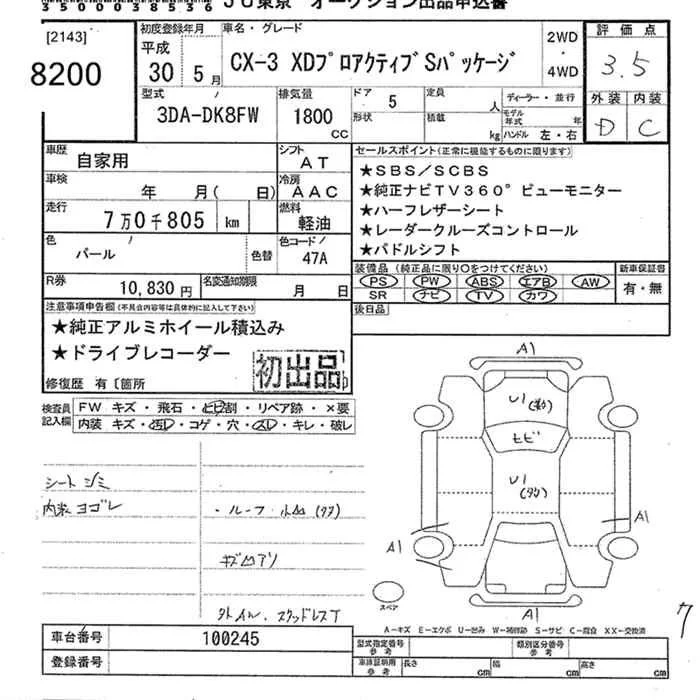 350000038536 JU東京 オークション出品申込書
[2143]
8200
初度登録年月
平成
30 5月
車名・グレード
CX-3 XDプロアクティブSパッケージ
2WD
4WD
評価点
3.5
外装 内装
D C
型式
3DA-DK8FW
排気量
1800
CC
ドア 5
形状
定員 人
積載 kg
ディーラー・並行
モデル年式 年
ハンドル 左・右
車歴
自家用
シフト
AT
車検
年 月( 日)
冷房
AAC
走行
7万0千805 km
燃料
軽油
色
パール
色替
色コード
47A
R券
10,830円
名変通知期限
月 日
セールスポイント(正常に機能するものに限ります)
★SBS/SCBS
★純正ナビTV360°ビューモニター
★ハーフレザーシート
★レーダークルーズコントロール
★パドルシフト
装備品(純正品に限り○をつけてください)
PS PW ABS エアB AW
SR ナビ TV カワ
新車保証書
有・無
後日品
注意事項申告欄(不具合内容等は具体的に記入して下さい)
★純正アルミホイール積込み
★ドライブレコーダー
初出品
修復歴 有〔箇所
検査員
記入欄
FW キズ・飛石・ヒビ割・リペア跡・×要
内装 キズ・汚レ・コゲ・穴・スレ・キレ・破レ
シートシミ
内装ヨゴレ
・ルーフ・小凹(タタ)
キズ凹アリ
外AW、スタッドレスT
A1
U1
ヒビ
U1
(タタ)
A1
A1
A1
スペア
7
A-キズ E-エクボ U-凹み W-補修跡 S-サビ C-腐食 XX-交換済
車台番号
100245
登録番号
型式指定番号
参考
類別区分番号
参考
車庫証明用
参考
長さ cm
幅 cm
高さ cm